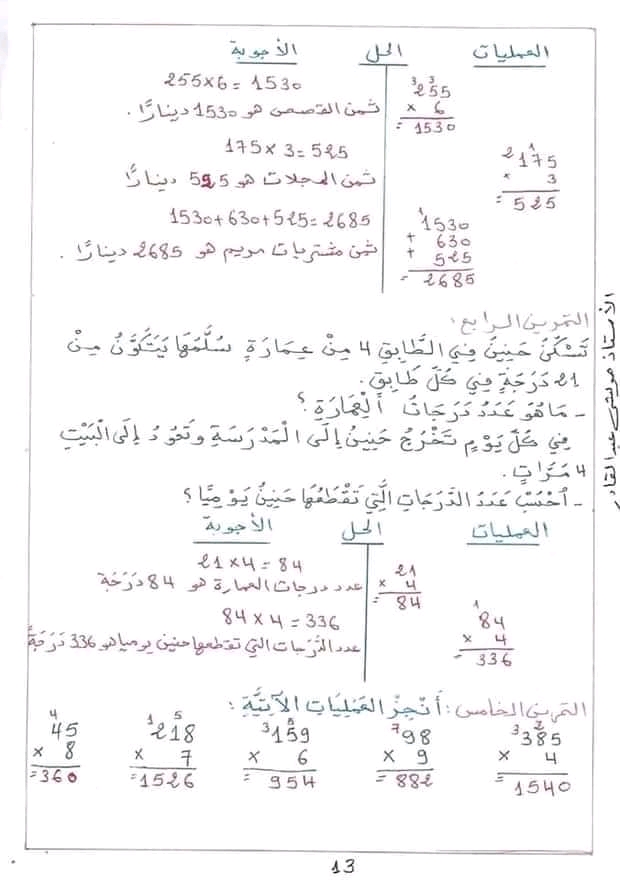 العمليات الحل الأجوبة
255×6=1530
ثمن القصص هو 1530 دينارًا.
3 3
255
× 6
= 1530
175×3=525
ثمن المجلات هو 525 دينارًا
2 1
175
× 3
= 525
1530+630+525=2685
ثمن مشتريات مريم هو 2685 دينارًا.
1
1530
+ 630
+ 525
= 2685
التمرين الرابع:
تَسْكُنُ حَنِينُ فِي الطَّابِقِ 4 مِنْ عِمَارَةٍ سُلَّمُهَا يَتَكَوَّنُ مِنْ
21 دَرَجَةٍ فِي كُلِّ طَابِقٍ.
- مَا هُوَ عَدَدُ دَرَجَاتُ الْعِمَارَةِ؟
فِي كُلِّ يَوْمٍ تَخْرُجُ حَنِينُ إِلَى الْمَدْرَسَةِ وَتَعُودُ إِلَى الْبَيْتِ
4 مَرَّاتٍ.
- اُحْسُبْ عَدَدُ الدَّرَجَاتِ الَّتِي تَقْطَعُهَا حَنِينُ يَوْمِيًّا؟
العمليات الحل الأجوبة
21×4=84
عدد درجات العمارة هو 84 دَرَجَة
21
× 4
= 84
84×4=336
عدد الدَّرَجات التي تقطعها حنين يوميا هو 336 دَرَجَةً
1
84
× 4
= 336
التمرين الخامس: أَنْجِزْ العَمَلِيَاتِ الآتِيَّةِ:
4
45
× 8
=360
1 5
218
× 7
=1526
3 5
159
× 6
= 954
7
98
× 9
= 882
3 2
385
× 4
= 1540
13
الأستاذ حويشي عبد القادر